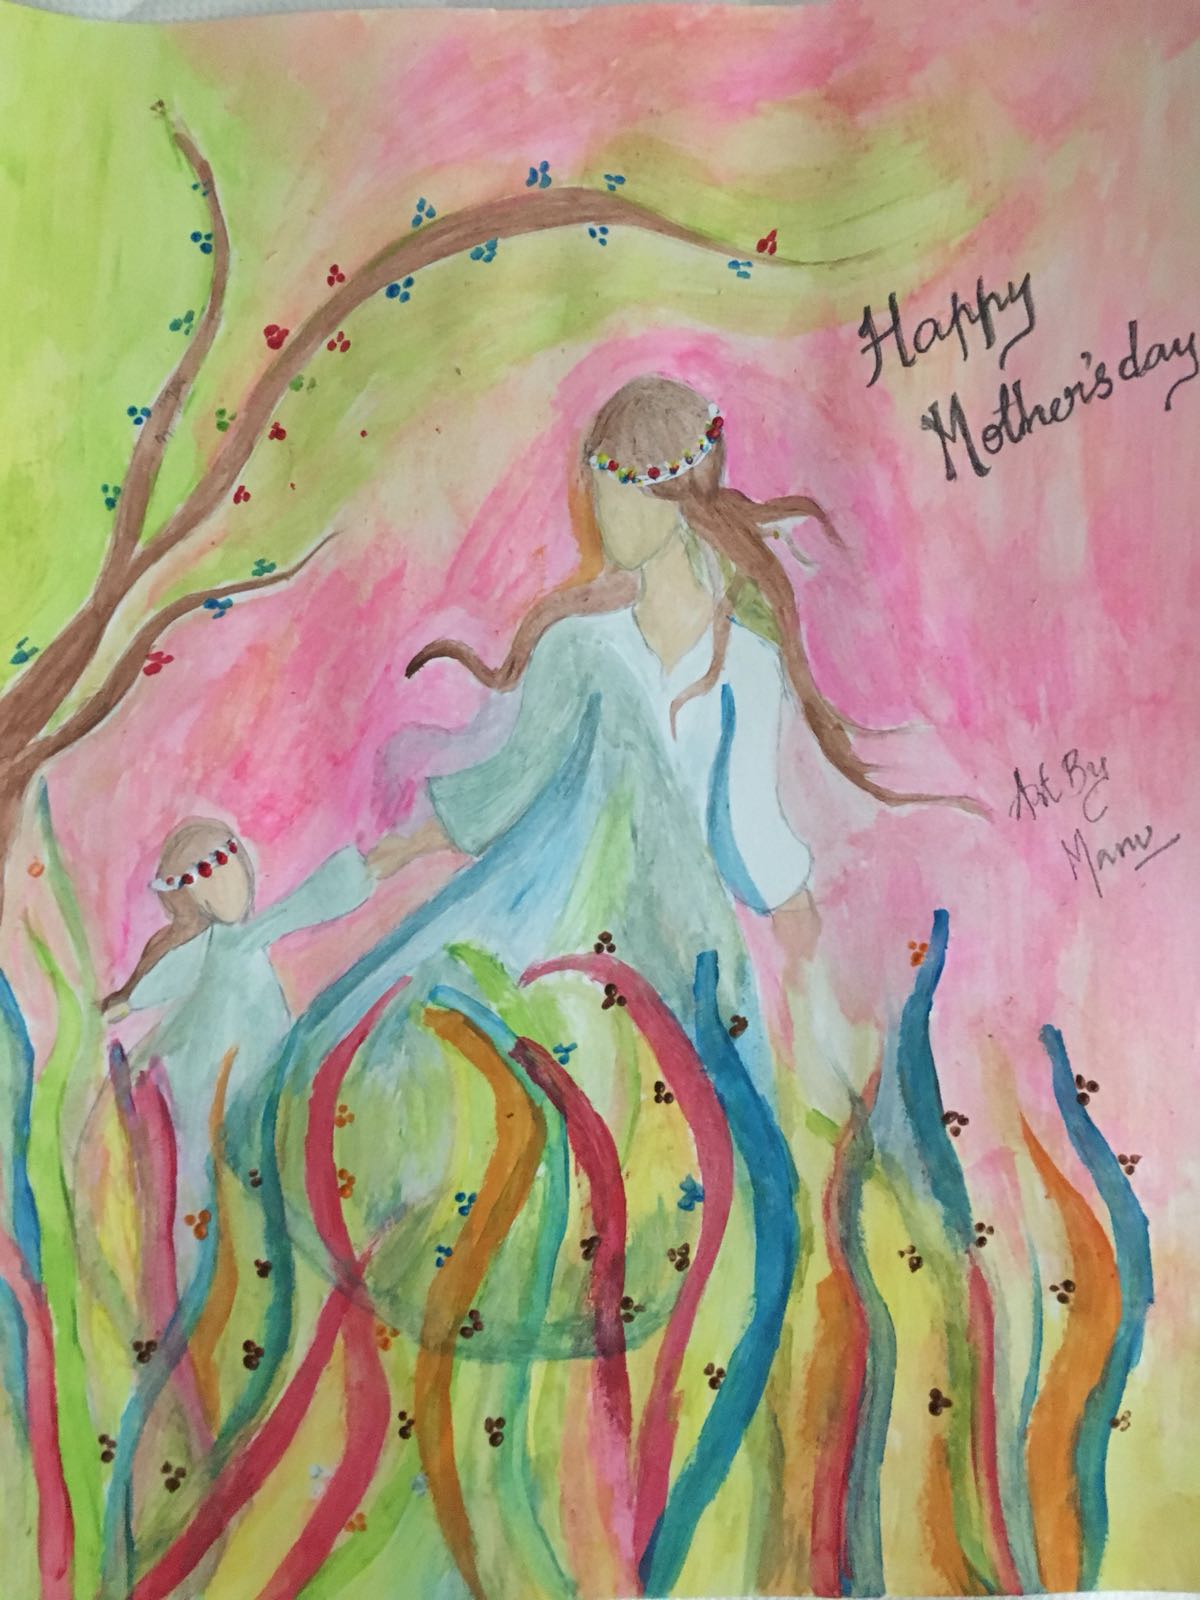 Happy
Mother's day
Art By
Manu